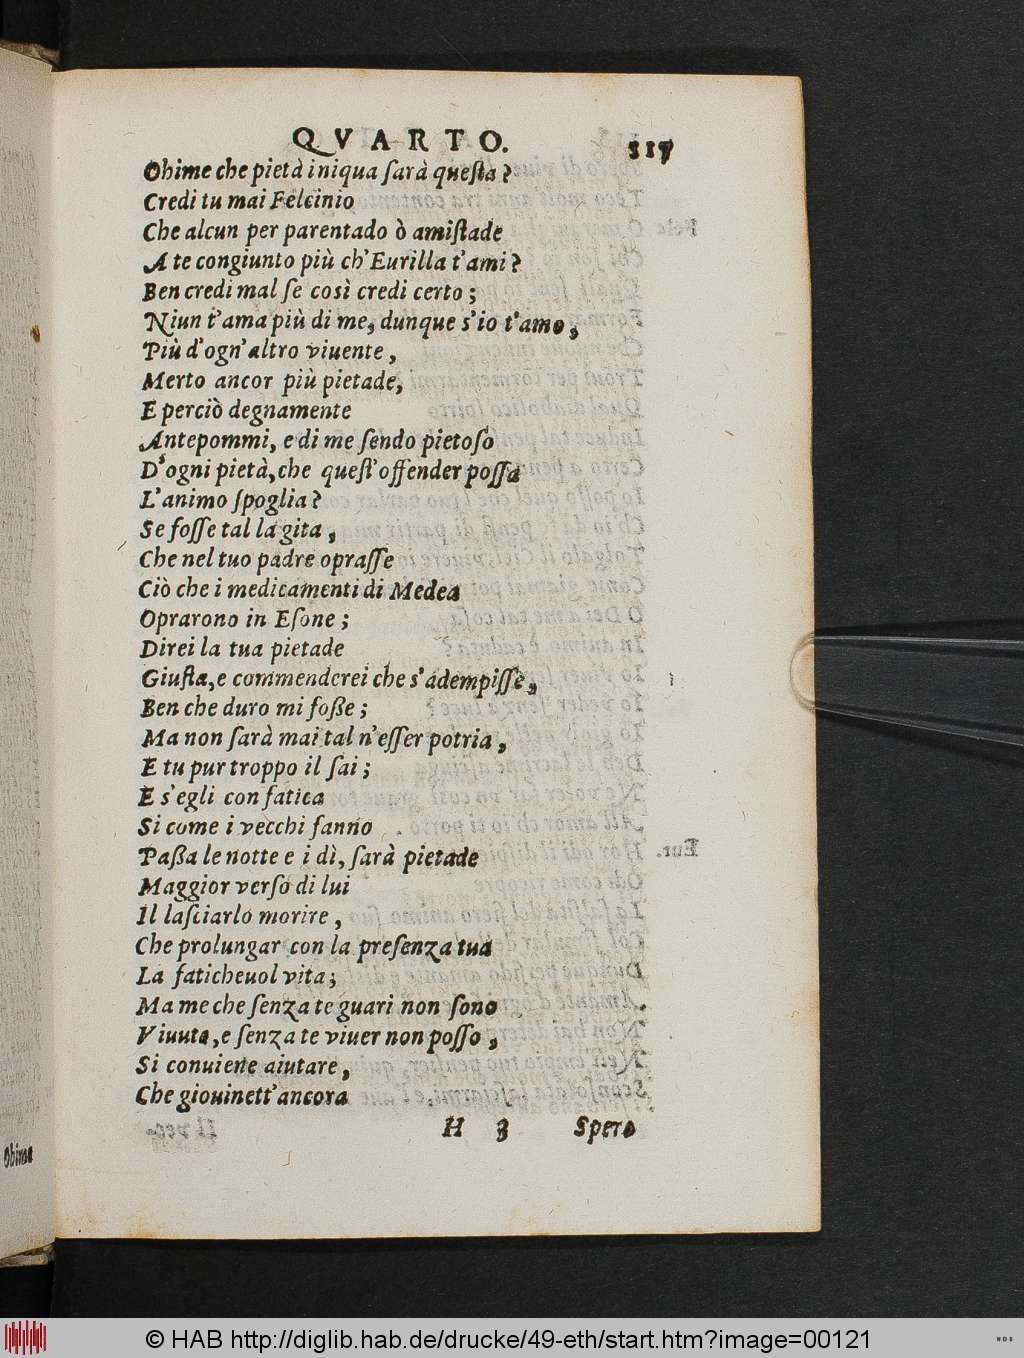 QVARTO. 117
Ohime che pietà iniqua ſarà queſta?
Credi tu mai Felcinio
Che alcun per parentado ò amiſtade
A te congiunto più ch'Eurilla t'ami?
Ben credi mal ſe così credi certo;
Niun t'ama più di me, dunque s'io t'amo,
Più d'ogn'altro viuente,
Merto ancor più pietade,
E perciò degnamente
Antepommi, e di me ſendo pietoſo
D'ogni pietà, che queſt'offender poſſa
L'animo ſpoglia?
Se foſſe tal la gita,
Che nel tuo padre opraſſe
Ciò che i medicamenti di Medea
Oprarono in Eſone;
Direi la tua pietade
Giuſta, e commenderei che s'adempiſſe,
Ben che duro mi foße;
Ma non ſarà mai tal n'eſſer potria,
E tu pur troppo il ſai;
E s'egli con fatica
Si come i vecchi fanno
Paßa le notte e i dì, ſarà pietade
Maggior verſo di lui
Il laſciarlo morire,
Che prolungar con la preſenza tua
La faticheuol vita;
Ma me che ſenza te guari non ſono
Viuuta, e ſenza te viuer non poſſo,
Si conuiene aiutare,
Che giouinett'ancora
H 3 Spero
Ohime
© HAB http://diglib.hab.de/drucke/49-eth/start.htm?image=00121